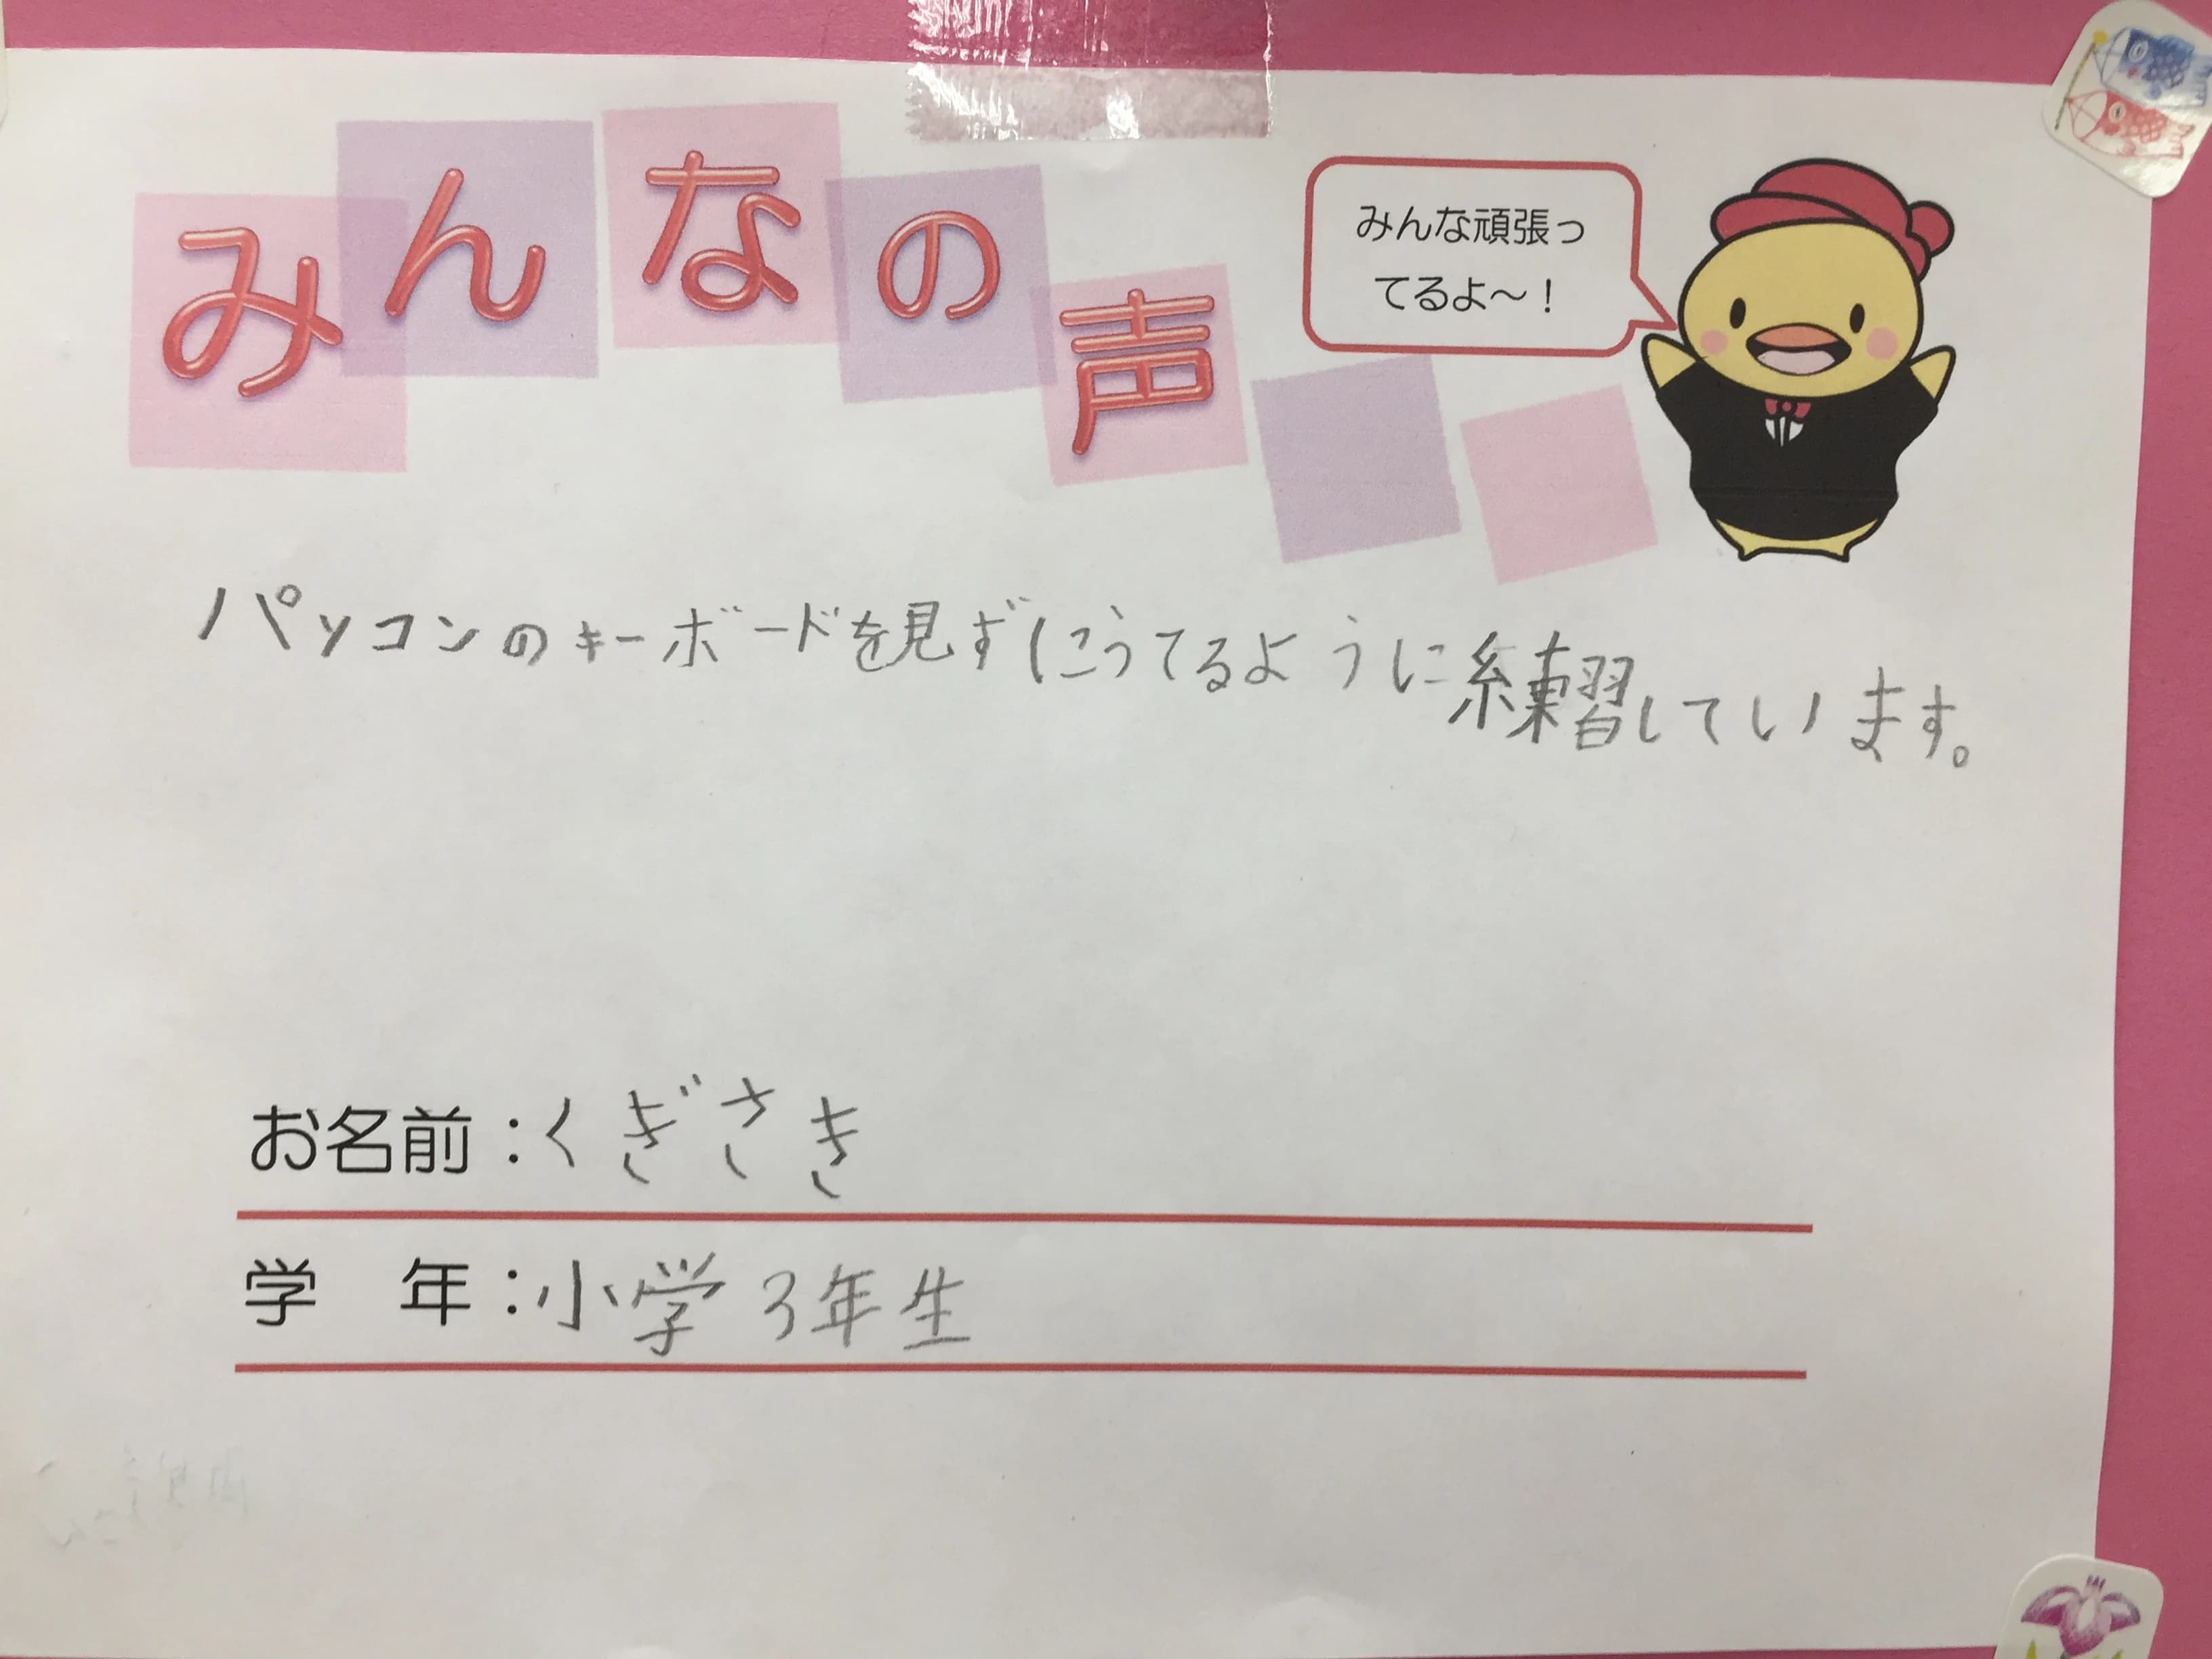 みんなの声
みんな頑張っ
てるよ～！
パソコンのキーボードを見ずにうてるように練習しています。
お名前：くぎさき
学　年：小学3年生